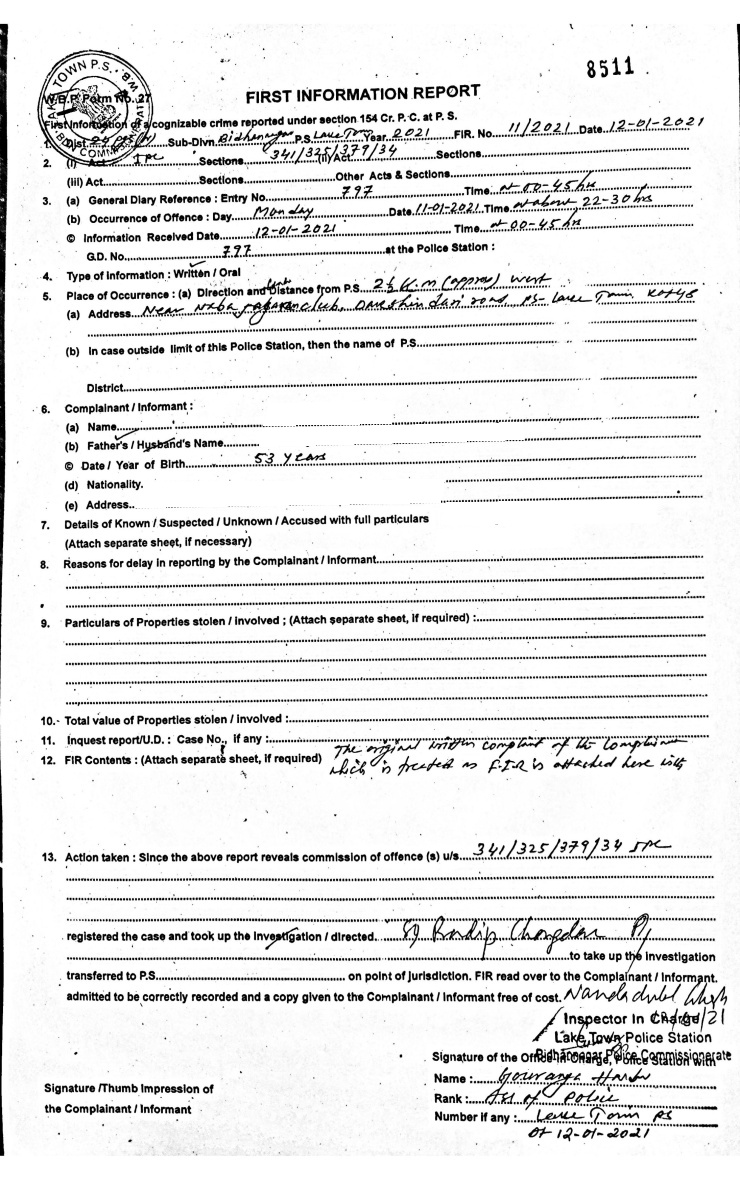 8511
TOWN P.S.
W.B.P. Form No. 27
FIRST INFORMATION REPORT
First Information of a cognizable crime reported under section 154 Cr. P. C. at P. S.
1. Dist. Sub-Divn. Bidhannagar P.S. Lake Town Year 2021 FIR. No. 11/2021 Date 12-01-2021
2. (i) Act IPC Sections 341/325/379/34 (ii) Act Sections
(iii) Act Sections Other Acts & Sections
3. (a) General Diary Reference : Entry No. 797 Time at 00-45 hrs
(b) Occurrence of Offence : Day Monday Date 11-01-2021 Time at about 22-30 hrs
© Information Received Date 12-01-2021 Time at 00-45 hrs
G.D. No. 797 at the Police Station :
4. Type of Information : Written / Oral
5. Place of Occurrence : (a) Direction and Distance from P.S. 2½ K.m (approx) west
(a) Address Near club, road PS- Lake Town
(b) In case outside limit of this Police Station, then the name of P.S.
District
6. Complainant / Informant :
(a) Name
(b) Father's / Husband's Name
© Date / Year of Birth 53 years
(d) Nationality.
(e) Address..
7. Details of Known / Suspected / Unknown / Accused with full particulars
(Attach separate sheet, if necessary)
8. Reasons for delay in reporting by the Complainant / Informant
9. Particulars of Properties stolen / involved ; (Attach separate sheet, if required) :
10.- Total value of Properties stolen / involved :
11. Inquest report/U.D. : Case No., if any :
12. FIR Contents : (Attach separate sheet, if required) The original written complaint of the
which is treated as F.I.R is attached here with
13. Action taken : Since the above report reveals commission of offence (s) u/s 341/325/379/34 IPC
registered the case and took up the Investigation / directed.
to take up the Investigation
transferred to P.S. on point of jurisdiction. FIR read over to the Complainant / Informant.
admitted to be correctly recorded and a copy given to the Complainant / Informant free of cost.
Inspector In Charge
Lake Town Police Station
Bidhannagar Police Commissionerate
Signature of the Officer-in-Charge, Police Station with
Name : Gouranga
Signature /Thumb Impression of
the Complainant / Informant
Rank : of Police
Number if any : Lake Town PS
Dt 12-01-2021